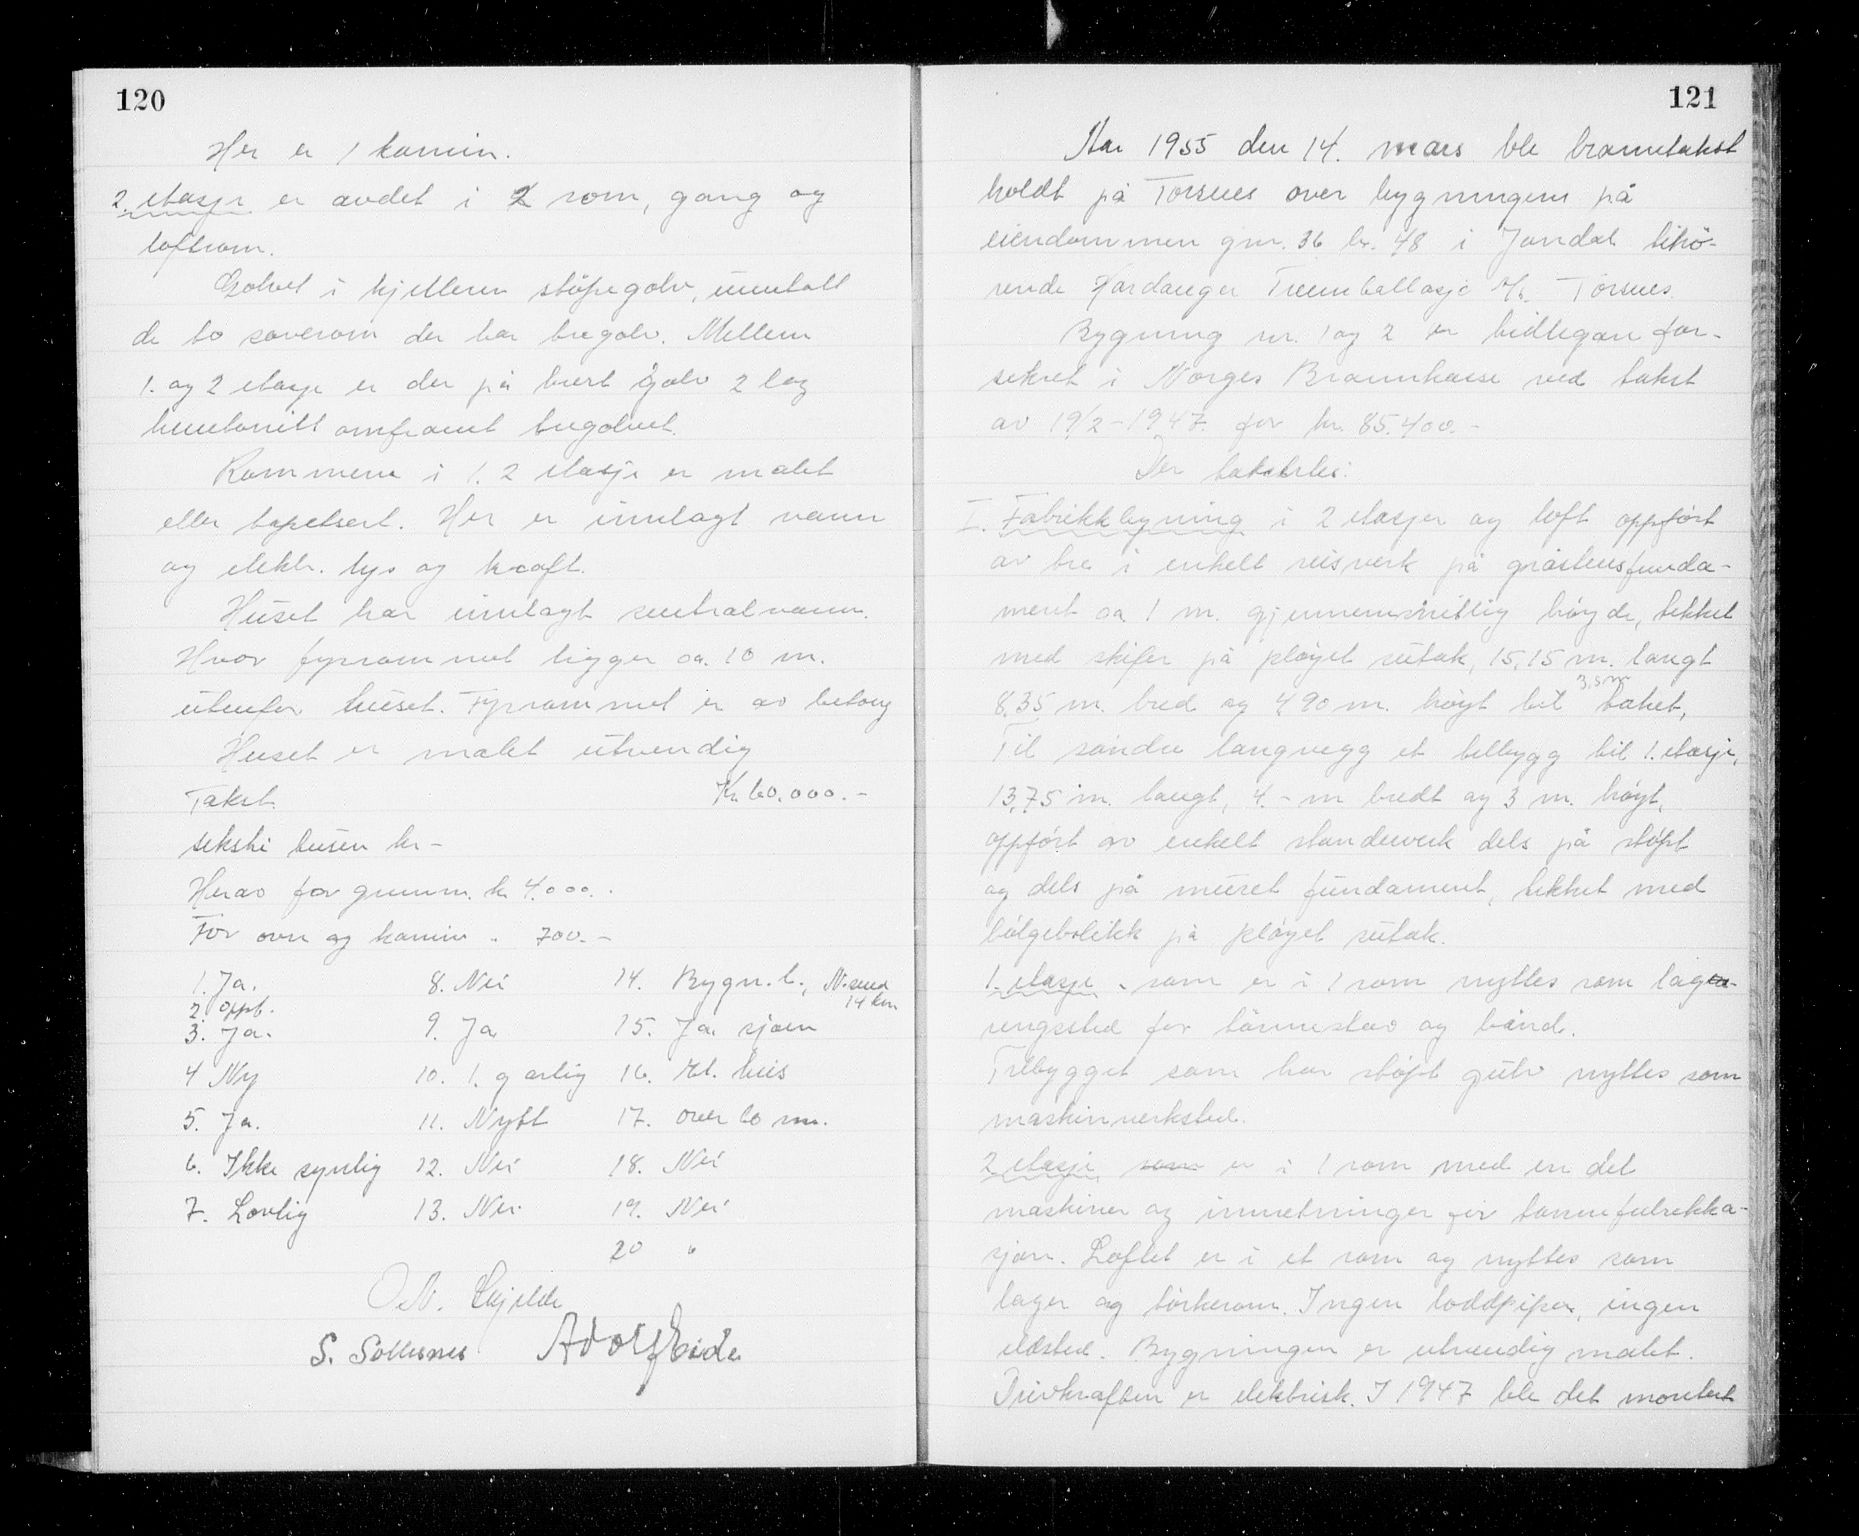 120
Her er 1 kamin.
2. etasje er avdet i 2 rom, gang og
loftrom.
Golvet i kjelleren støpegolv, unntatt
de to soverom der har tregolv. Mellem
1. og 2 etasje er der på hvert golv 2 lag
huntonitt omframt tregolvet.
Rommene i 1. 2 etasje er malt
eller tapetsert. Her er innlagt vann
og elektr. lys og kraft.
Huset har innlagt sentralvarme.
Hvor fyrrommet ligger ca. 10 m.
utenfor huset. Fyrrommet er av betong
Huset er malt utvendig
Takst. Kr. 60.000.-
seksti tusen kr -
Herav for grunnm. kr 4.000.-
For ovn og kamin - 700.-
1. Ja. 8. Nei 14. Bygn. l., N.sund
14 km
2. Oppt.
3. Ja. 9. Ja 15. Ja sjøen
4 Ny 10. 1. g årlig 16. El. hus
5. Ja. 11. Nytt 17. over 60 m.
6. Ikke synlig 12. Nei 18. Nei
7. Lovlig 13. Nei 19. Nei
20 "
O. N. Skjelde
S. Sollesnes Adolf Eide
121
Aar 1955 den 14. mars ble branntakst
holdt på Torsnes over bygningene på
eiendommen gnr. 36 br. 48 i Jondal tilhø-
rende Hardanger Treemballasje A/s. Torsnes.
Bygning nr. 1 og 2 er tidlegare for-
sikret i Norges Brannkasse ved takst
av 19/2-1947 for kr. 85.400.-
Der takstertes:
I. Fabrikkbygning i 2 etasjer og loft oppført
av tre i enkelt reisverk på gråstensfunda-
ment ca 1 m. gjennemsnittlig høyde, tekket
med skifer på pløyet sutak, 15,15 m. langt
3,5 m
8,35 m. bred og 4,90 m. høyt til taket,
Til søndre langvegg et tilbygg til 1. etasje,
13,75 m. langt, 4.- m bredt og 3 m. høyt,
oppført av enkelt standerverk dels på støpt
og dels på muret fundament, tekket med
bølgeblikk på pløyet sutak.
1. etasje - som er i 1 rom nyttes som lag-
ringssted for tønnestav og bånd.
Tilbygget som har støpt gulv nyttes som
maskinverksted.
2 etasje som er i 1 rom med en del
maskiner og innretninger for tønnefabrikka-
sjon. Loftet er i et rom og nyttes som
lager og tørkerom. Ingen loddpiper, ingen
ildsted. Bygningen er utvendig malt.
Drivkraften er elektrisk. I 1947 ble det montert